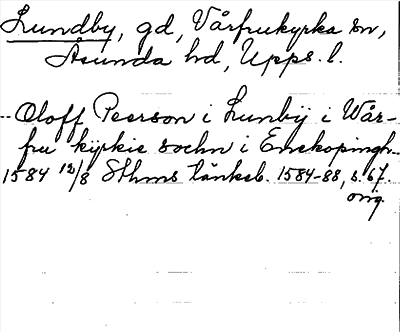 Lundby, gd, Vårfrukyrka sn,
Åsunda hd, Upps. l.
-- Oloff Peerson i Lunbij i Wår-
fru kyrkie sochn i Enekopingh--
1584 12/8 Sthms tänkeb. 1584-88, s. 67.
orig.